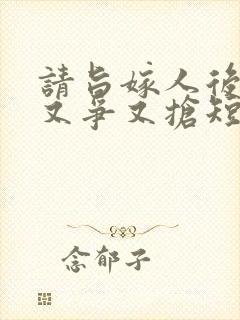 請旨嫁人後
又爭又搶短
念郁子